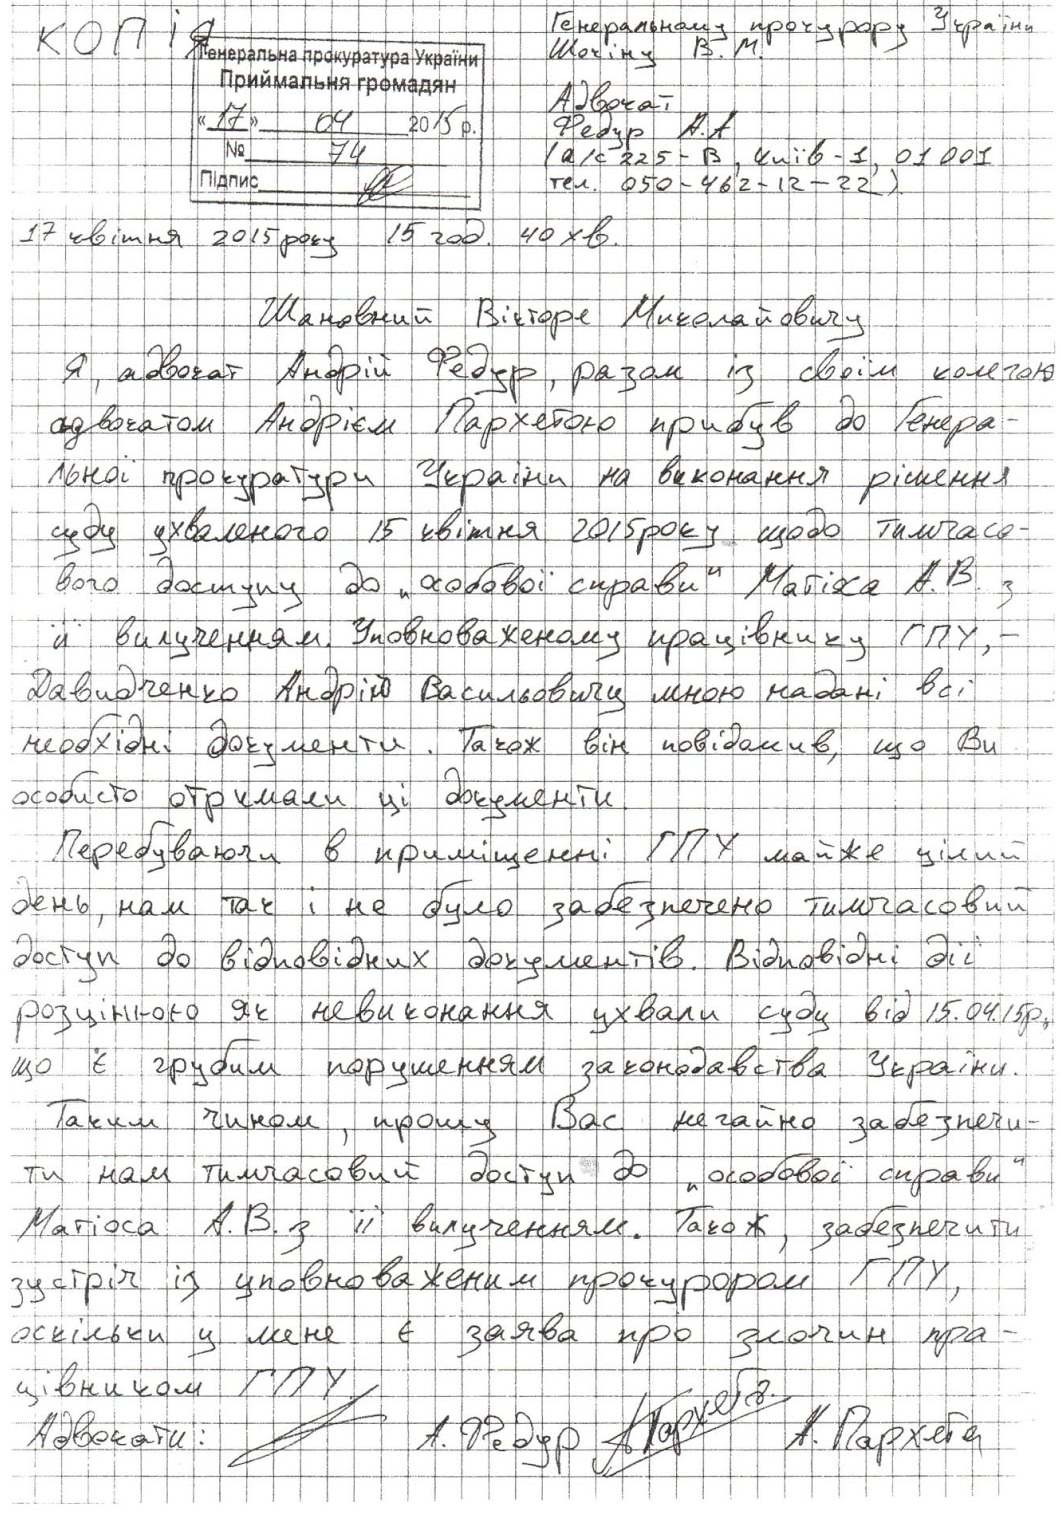 КОПІЯ
Генеральна прокуратура України
Приймальня громадян
«17» 04 2015 р.
№ 74
Підпис
Генеральному прокурору України
Шокіну В. М.
Адвокат
Федур А.А
(а/с 225-В, Київ-1, 01001
тел. 050-462-12-22)
17 квітня 2015 року 15 год. 40 хв.
Шановний Вікторе Миколайовичу
Я, адвокат Андрій Федур, разом із своїм колегою
адвокатом Андрієм Пархетою прибув до Генера-
льної прокуратури України на виконання рішення
суду ухваленого 15 квітня 2015 року щодо тимчасо-
вого доступу до „особової справи" Матіоса А.В. з
її вилученням. Уповноваженому працівнику ГПУ, –
Давидченко Андрію Васильовичу мною надані всі
необхідні документи. Також він повідомив, що Ви
особисто отримали ці документи.
Перебуваючи в приміщенні ГПУ майже цілий
день, нам так і не було забезпечено тимчасовий
доступ до відповідних документів. Відповідні дії
розцінюю як невиконання ухвали суду від 15.04.15р,
що є грубим порушенням законодавства України.
Таким чином, прошу Вас негайно забезпечи-
ти нам тимчасовий доступ до „особової справи"
Матіоса А.В. з її вилученням. Також, забезпечити
зустріч із уповноваженим прокурором ГПУ,
оскільки у мене є заява про злочин пра-
цівником ГПУ.
Адвокати: А. Федур Пархета А. Пархета